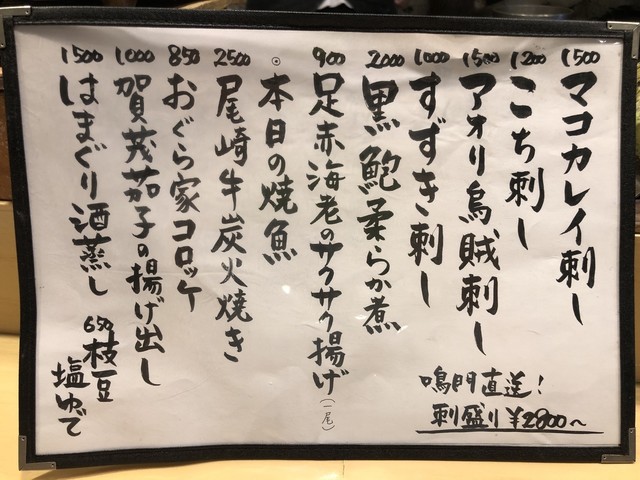 1500 マコカレイ刺し
1200 こち刺し
1500 アオリ烏賊刺し
1000 すずき刺し
2000 黒鮑柔らか煮
900 足赤海老のサクサク揚げ(一尾)
◎本日の焼魚
2500 尾崎牛炭火焼き
850 おぐら家コロッケ
1000 賀茂茄子の揚げ出し
1500 はまぐり酒蒸し
650 枝豆
塩ゆで
鳴門直送!
刺盛り ¥2800〜